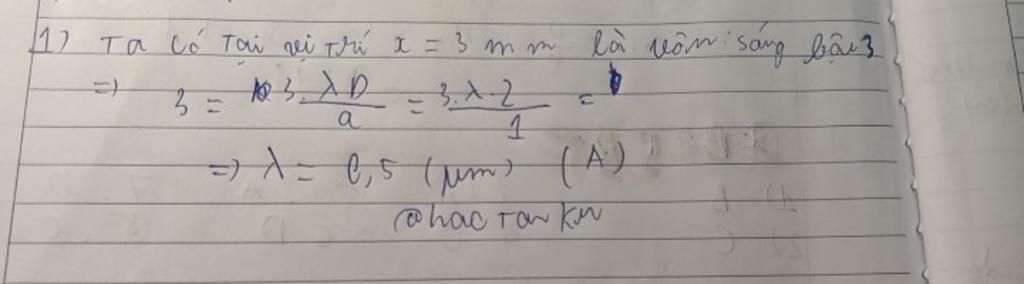 1) Ta có tại vị trí x = 3 mm là vân sáng bậc 3
=> 3 = 3. λD / a = 3.λ.2 / 1 =
=> λ = 0,5 (μm) (A)